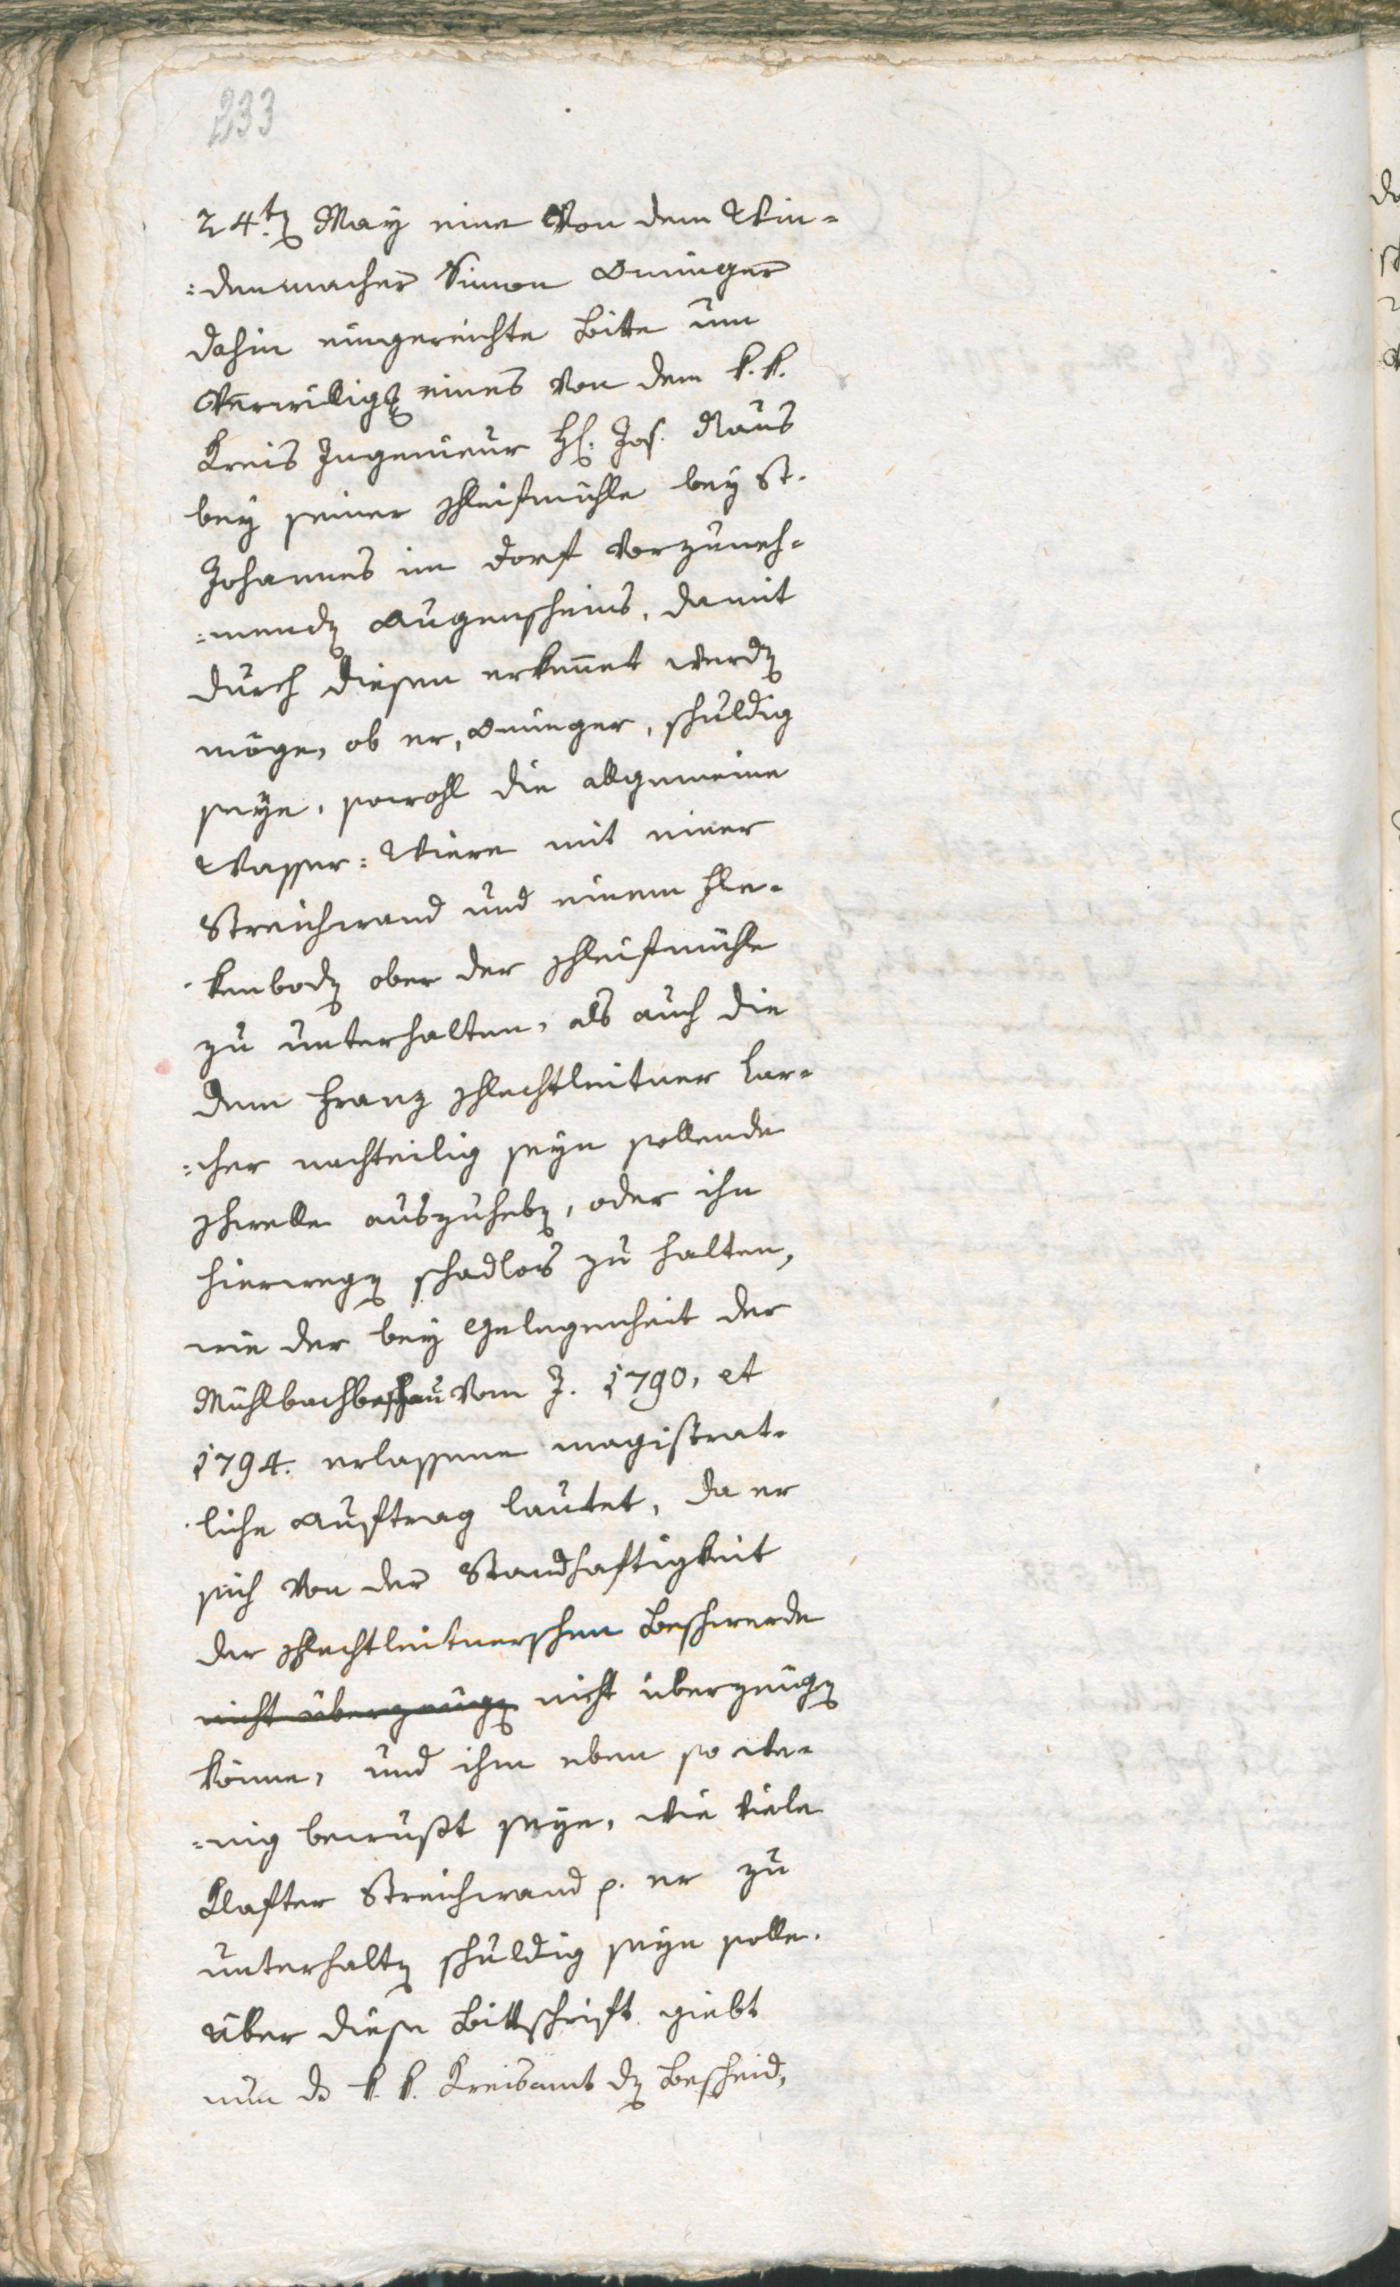 233
24ten May eine von dem Win-
=denmacher Simon Eninger
dahin eingereichte Bitte um
Verwilligg eines von dem k. k.
Kreis Ingenieur H. Jos. Naus
bey seiner Schleifmühle bey St.
Johannes im Dorf vorzuneh-
=menden Augenscheins, damit
durch diesen erkennet werden
möge, ob er, Eninger, schuldig
seye, sowohl die allgemeine
Wasser=Wiere mit einer
Streichwand und einem Fle-
kenboden ober der Schleifmühle
zu unterhalten, als auch die
dem Franz Schlechtleitner Lar-
=cher nachteilig seyn sollende
Schwelle auszuheben, oder ihn
hierwegen schadlos zu halten,
wie der bey Gelegenheit der
Mühlbachbeschau vom J. 1790, et
1794. erlassene magistrat-
liche Auftrag lautet, da er
sich von der Standhaftigkeit
der Schlechtleitnerschen Beschwerde
nicht überzeugen nicht überzeugen
könne, und ihm eben so we-
=nig bewußt seye, wie viele
Klafter Streichwand p. er zu
unterhalten schuldig seyn solle.
Über diese Bittschrift giebt
nun das k. k. Kreisamt den Bescheid,